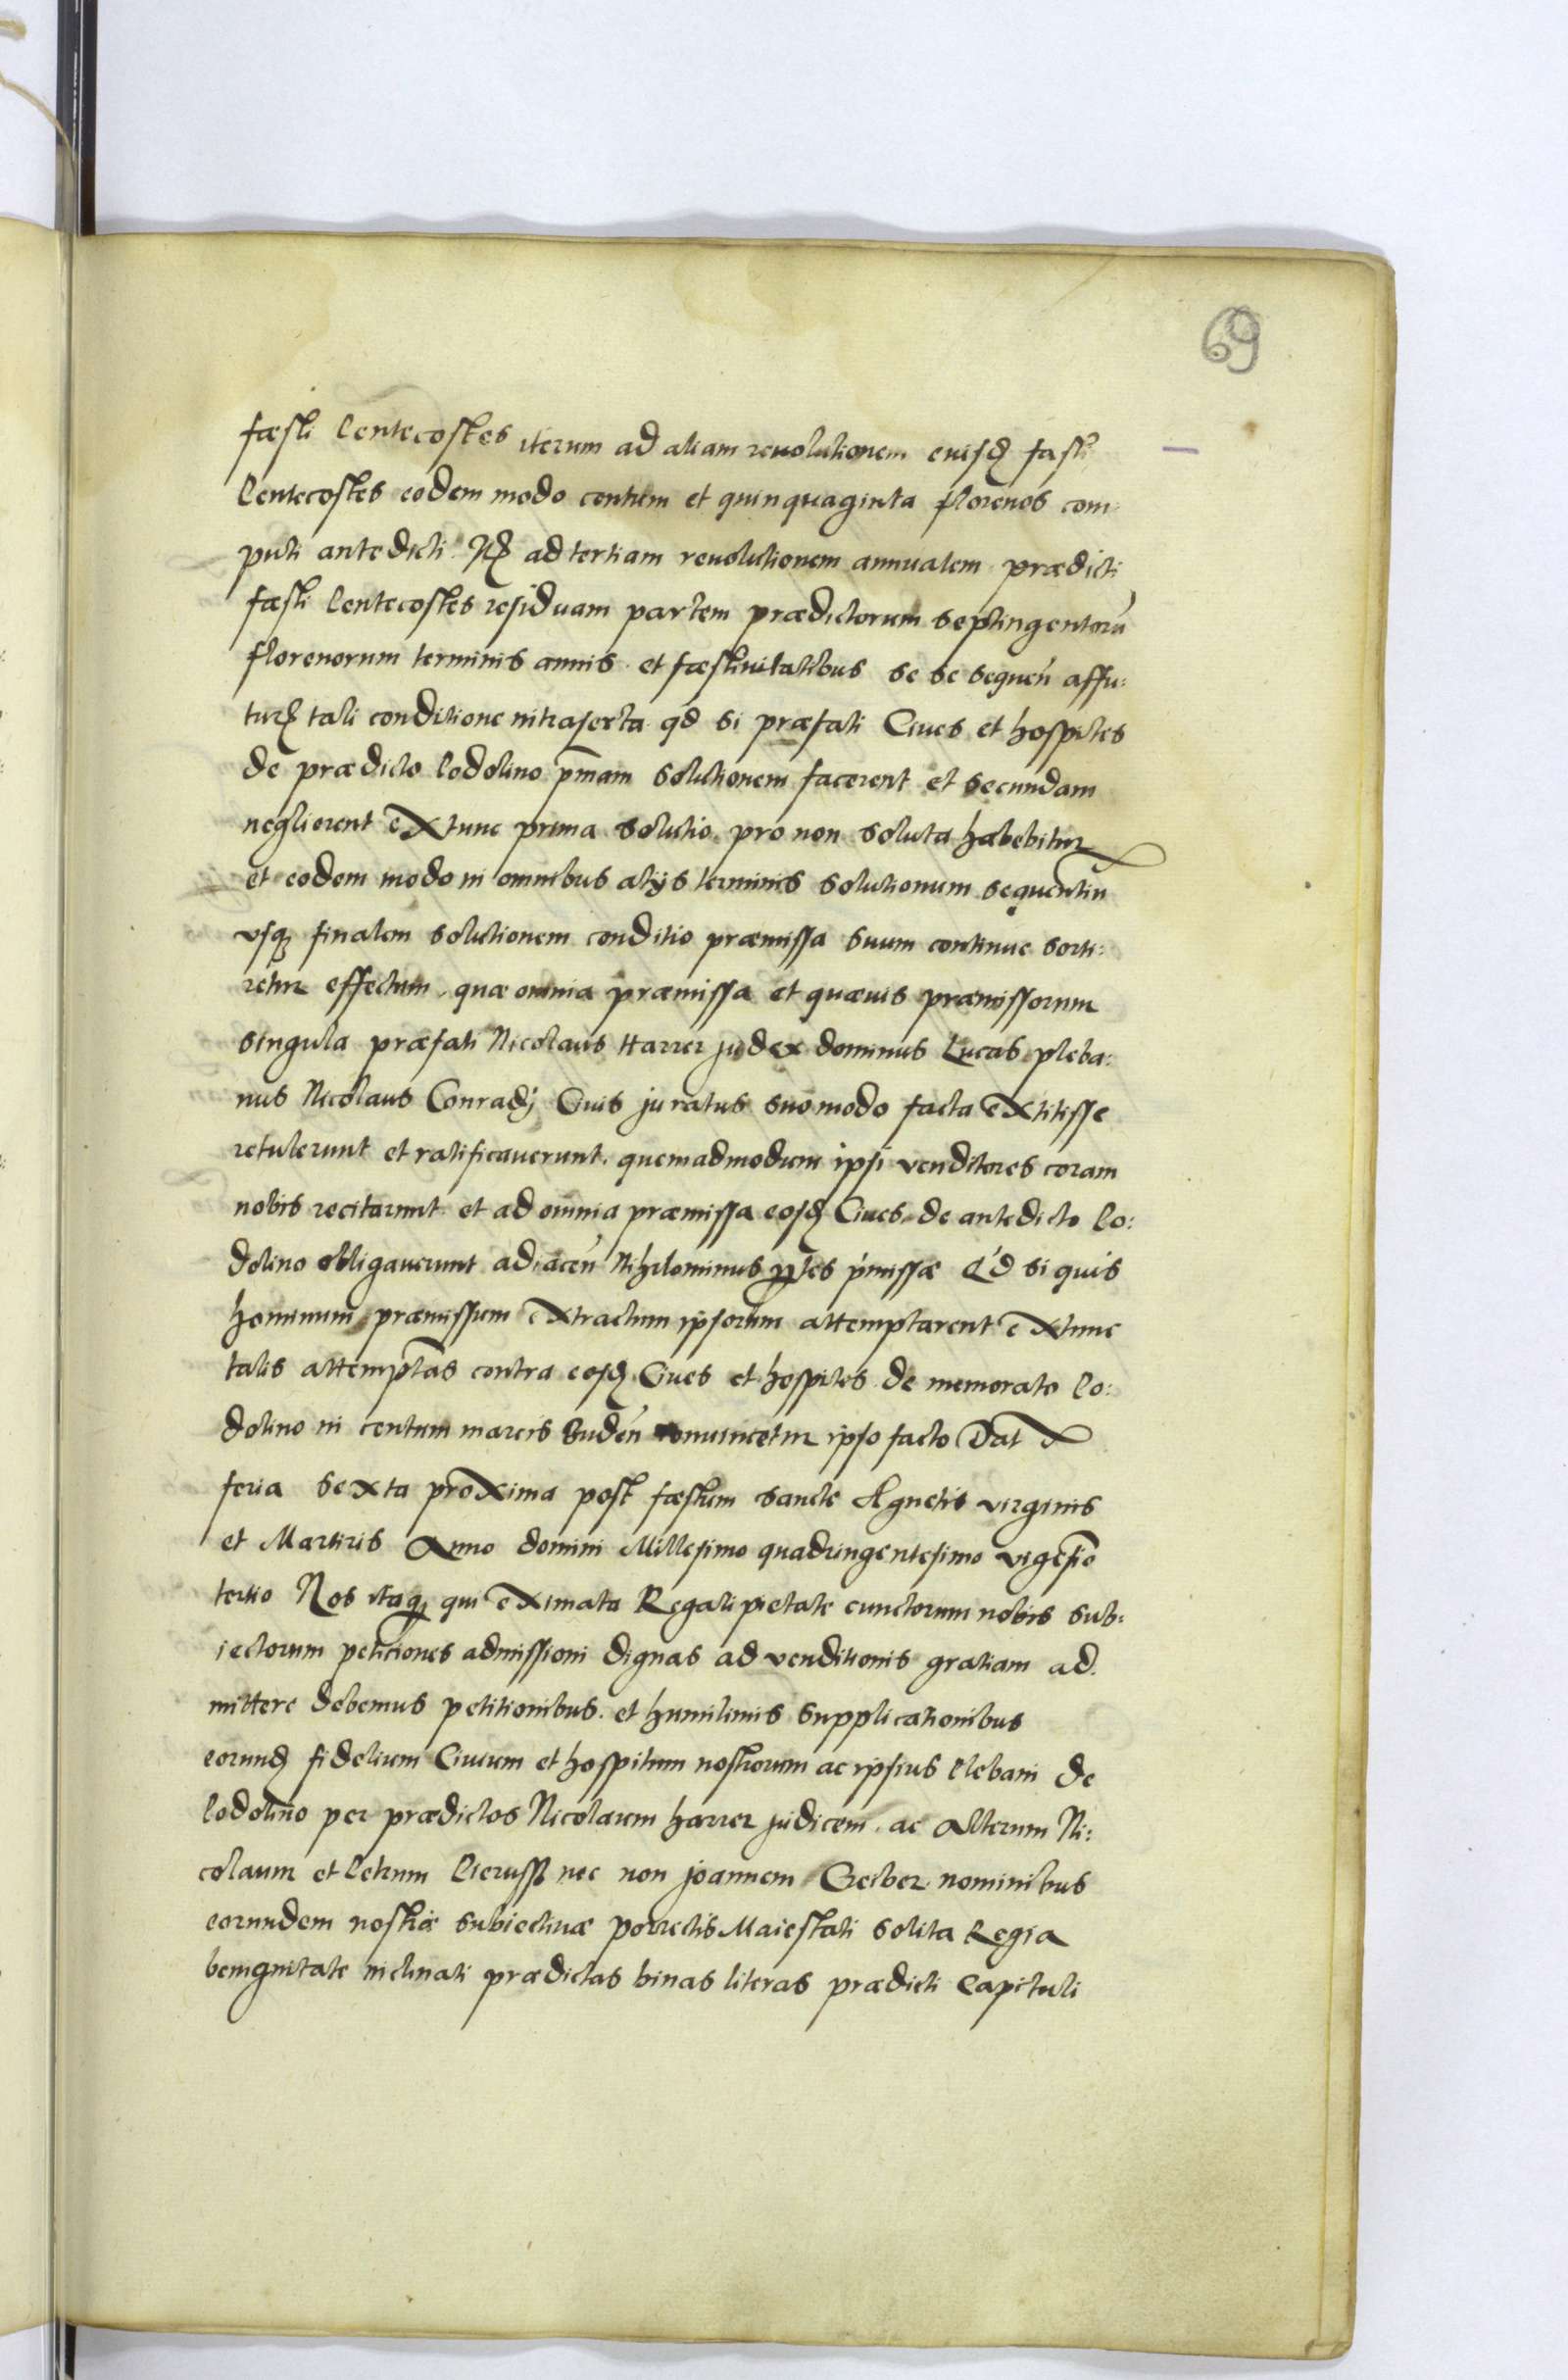 69
fæsti Pentecostes iterum ad aliam reuolutionem eiusd fæsti
Pentecostes eodem modo centum et quinquaginta florenos com
puti antedicti Itē ad tertiam reuolutionem annualem prædicti
fæsti Pentecostes residuam partem prædictorum septingentorū
florenorum terminis annis et fæstiuitatibus se se sequeń affu:
tur tali conditione intraserta qd si præfati Ciues et hospites
de prædicto Podolino pmam solutionem facerent et secundam
neglierent extunc prima solutio pro non soluta habebitur
et eodem modo in omnibus alijs terminis solutionum sequentiu
vsq finalem solutionem conditio præmissa suum continue sorti:
retur effectum, quæ omnia præmissa et quæuis præmissorum
singula præfati Nicolaus Harrer judex dominus Lucas pleba:
nus Nicolaus Conradj Ciuis juratus suomodo facta extitisse
retulerunt et ratificauerunt. quemadmodum ipsi venditores coram
nobis recitarunt et ad omnia præmissa eosd Ciues de antedicto Po:
dolino obligauerunt adiaceń Nihilominus ptes pmissæ Qd si quis
hominum præmissum extractum ipsorum attemptarent extunc
talis attemptas contra eosd Ciues et hospites de memorato Po:
dolino in centum marcis Budeń conuincetur ipso facto Dat
feria sexta proxima post fæstum sancte Agnetis virginis
et Martiris Anno domini Millesimo quadringentesimo vigesio
tertio Nos itaq qui eximata Regali pietate cunctorum nobis sub:
iectorum peticiones admissioni dignas ad venditionis gratiam ad
mittere debemus petitionibus et humilimis supplicationibus
eorund fidelium Ciuium et hospitum nostrorum ac ipsius Plebani de
Podolino per prædictos Nicolaum harrer judicem ac Alterum Ni:
colaum et Petrum Pierussl nec non joannem Geiber nominibus
eorundem nostræ subiectiuæ porrectis Maiestati solita Regia
benignitate inclinati prædictas binas literas prædicti Capituli